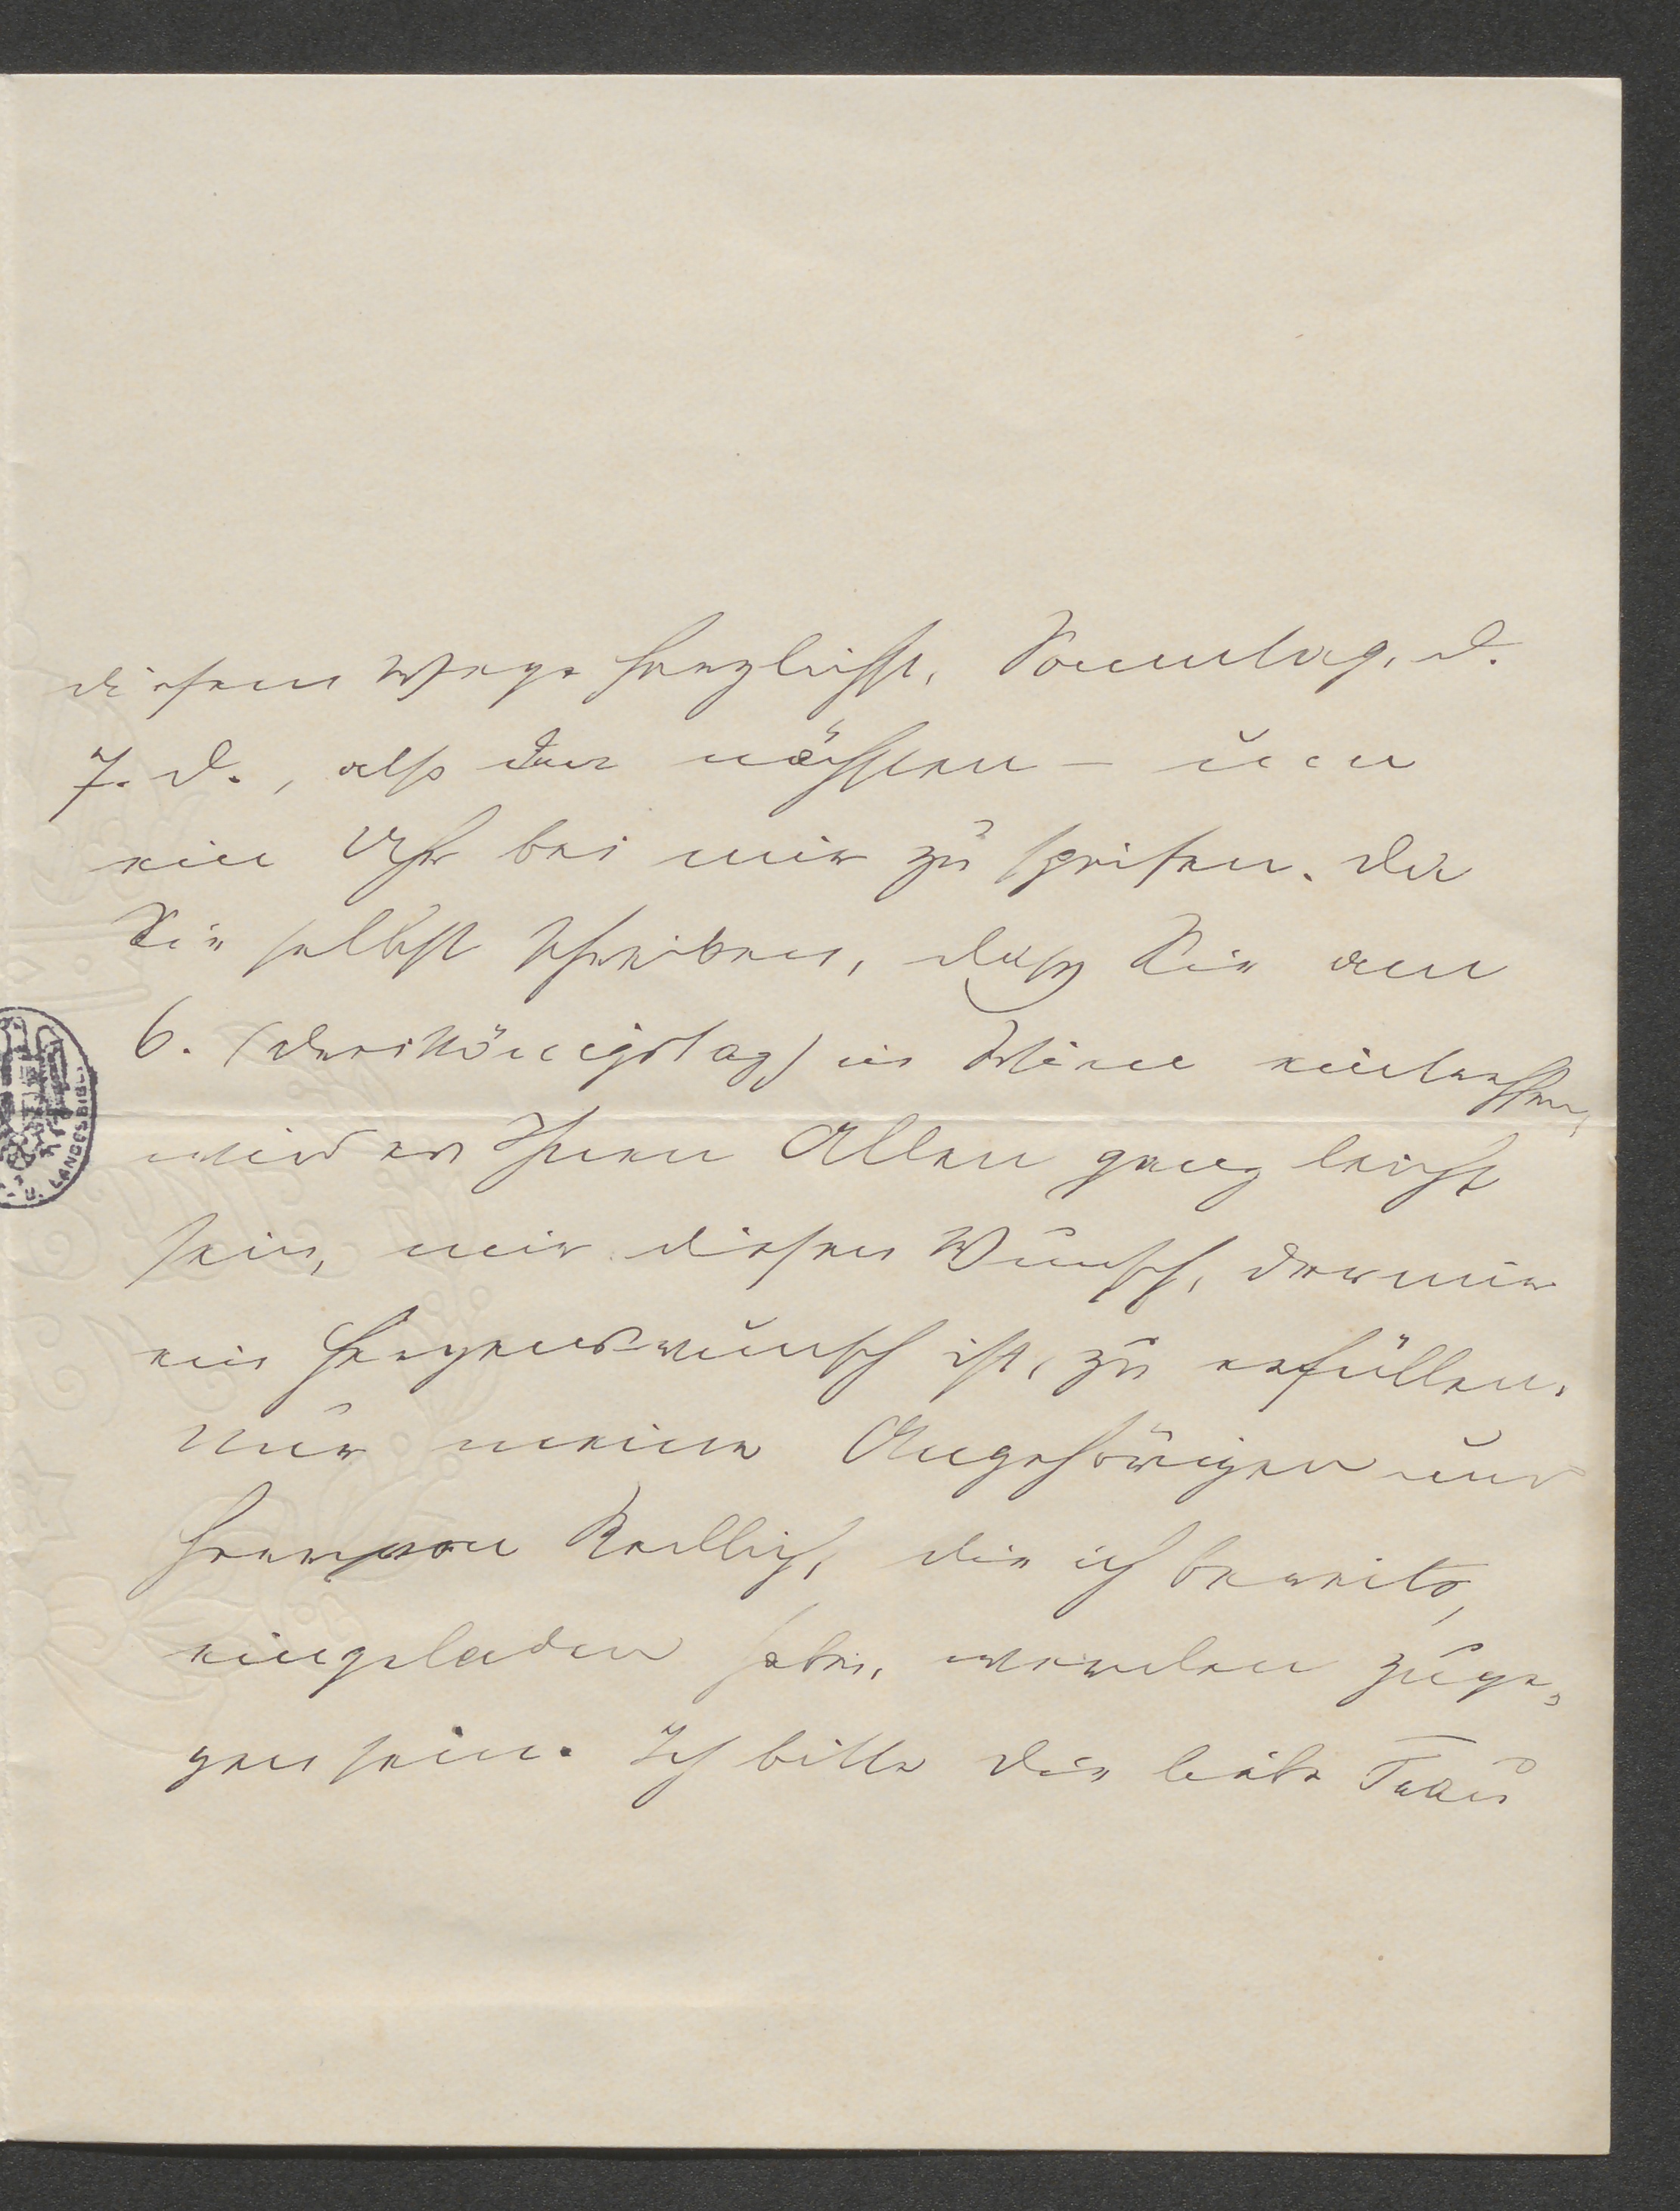 diesem Wege herzlichst, Sonntag, d.
7. d., also den nächsten – um
ein Uhr bei mir zu speisen. Da
Sie selbst schreiben, daß Sie am
6. (Dreikönigstag) in Wien eintreffen,
wird es Ihnen Allen ganz leicht
sein, mir diesen Wunsch, der mir
ein Herzenswunsch ist, zu erfüllen.
Nur meine Angehörigen und
Herr von Redlich, die ich bereits
eingeladen habe, werden zuge-
gen sein. Ich bitte die liebe Frau
U. LANDESBIBL.